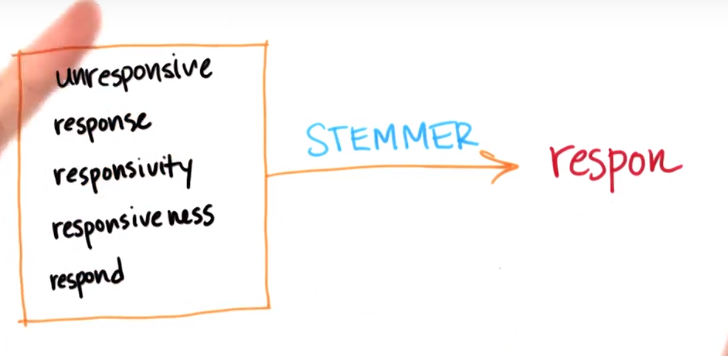 unresponsive
response
responsivity
responsiveness
respond
STEMMER
respon